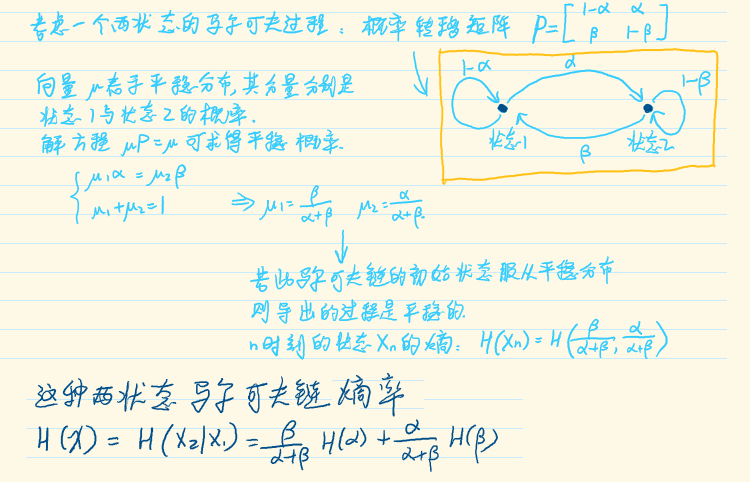 考虑一个两状态的马尔可夫过程：概率转移矩阵 P=[1-α α
β 1-β]
向量μ表示平稳分布,其分量分别是
状态1与状态2的概率.
解方程 μP=μ 可求得平稳概率.
1-α
α
1-β
状态1
状态2
β
{μ₁α=μ₂β
μ₁+μ₂=1
⇒ μ₁=β/(α+β) μ₂=α/(α+β).
若此马尔可夫链的初始状态服从平稳分布
则导出的过程是平稳的.
n时刻的状态Xn的熵：H(Xn)=H(β/(α+β), α/(α+β))
这种两状态马尔可夫链熵率
H(χ)=H(X₂|X₁)=β/(α+β) H(α)+α/(α+β) H(β)